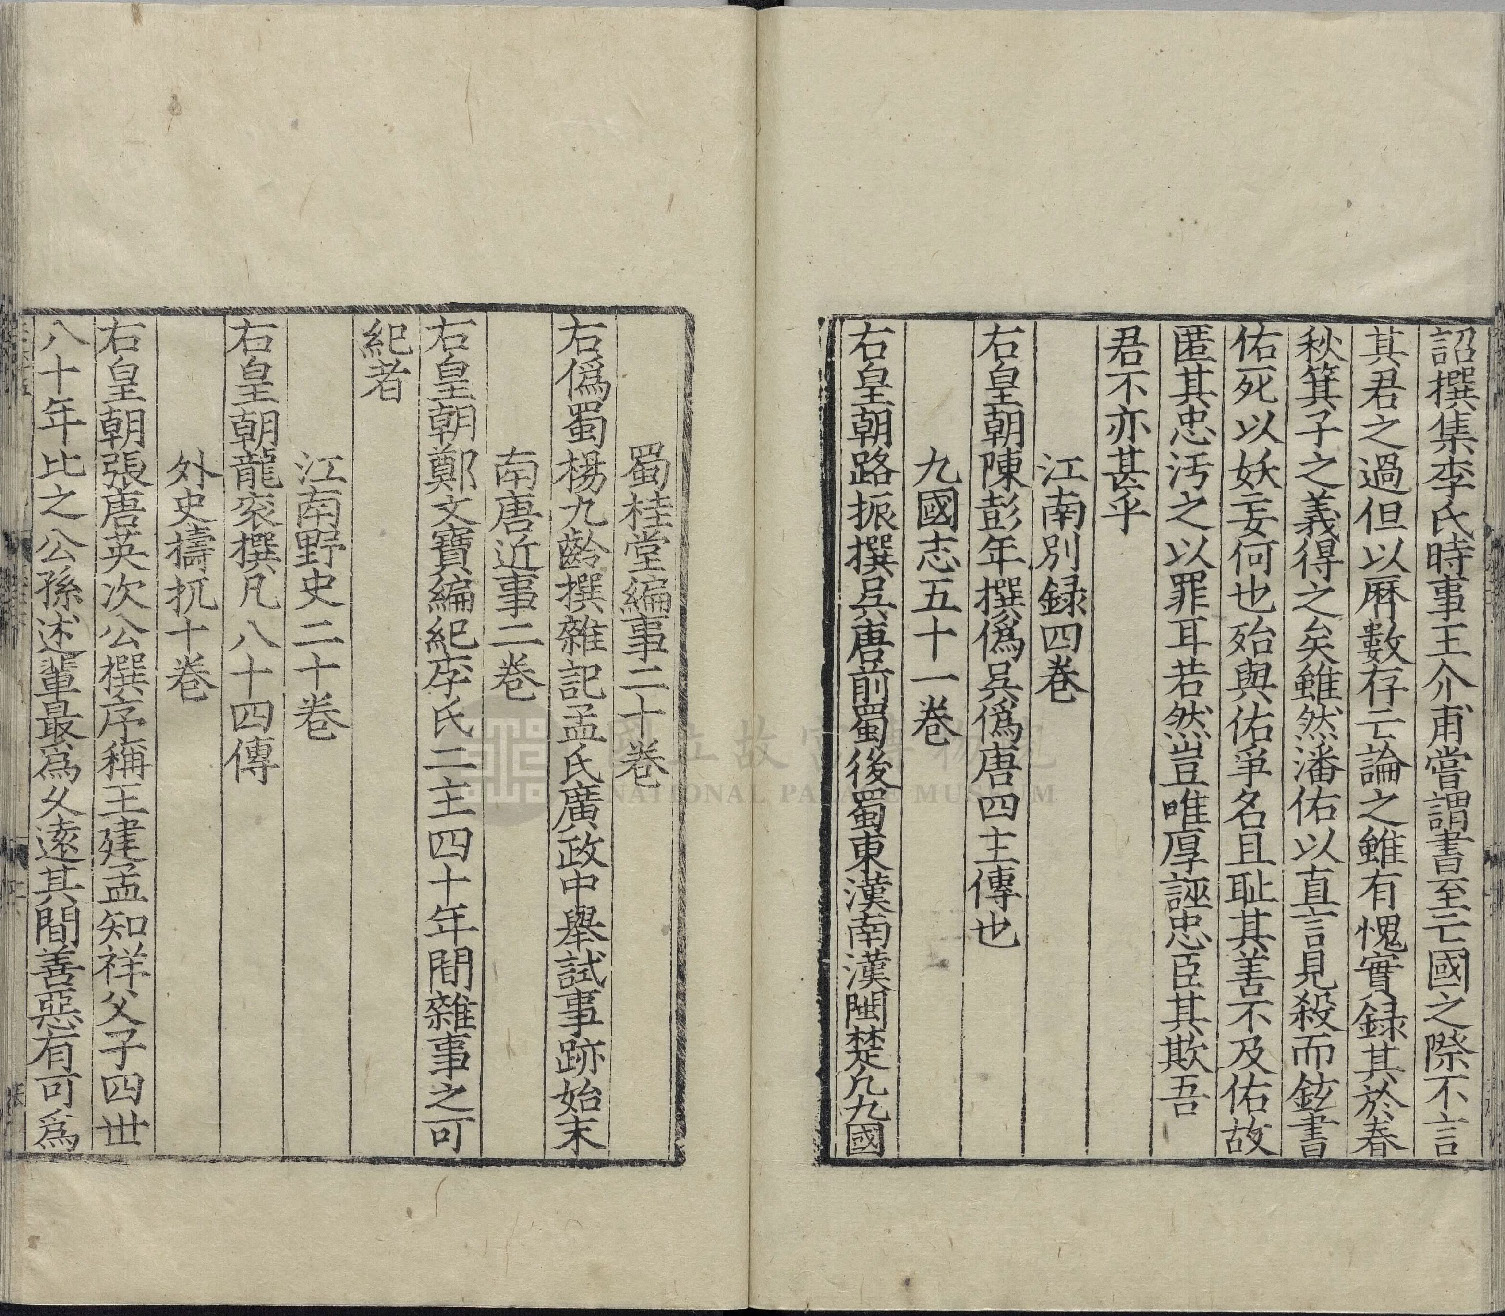 詔撰集李氏時事王介甫嘗謂書至亡國之際不言
其君之過但以曆數存亡論之雖有愧實録其於春
秋箕子之義得之矣雖然潘佑以直言見殺而鉉書
佑死以妖妄何也殆與佑爭名且耻其善不及佑故
匿其忠汚之以罪耳若然豈唯厚誣忠臣其欺吾
君不亦甚乎
江南别録四卷
右皇朝陳彭年撰僞吳僞唐四主傳也
九國志五十一卷
右皇朝路振撰吳唐前蜀後蜀東漢南漢閩楚凡九國
蜀桂堂編事二十卷
右僞蜀楊九齡撰雜記孟氏廣政中舉試事跡始末
南唐近事二卷
右皇朝鄭文寶編紀李氏二主四十年間雜事之可
紀者
江南野史二十卷
右皇朝龍衮撰凡八十四傳
外史檮杌十卷
右皇朝張唐英次公撰序稱王建孟知祥父子四世
八十年比之公孫述輩最爲久遠其間善惡有可爲
國立故宮博物院
NATIONAL PALACE MUSEUM